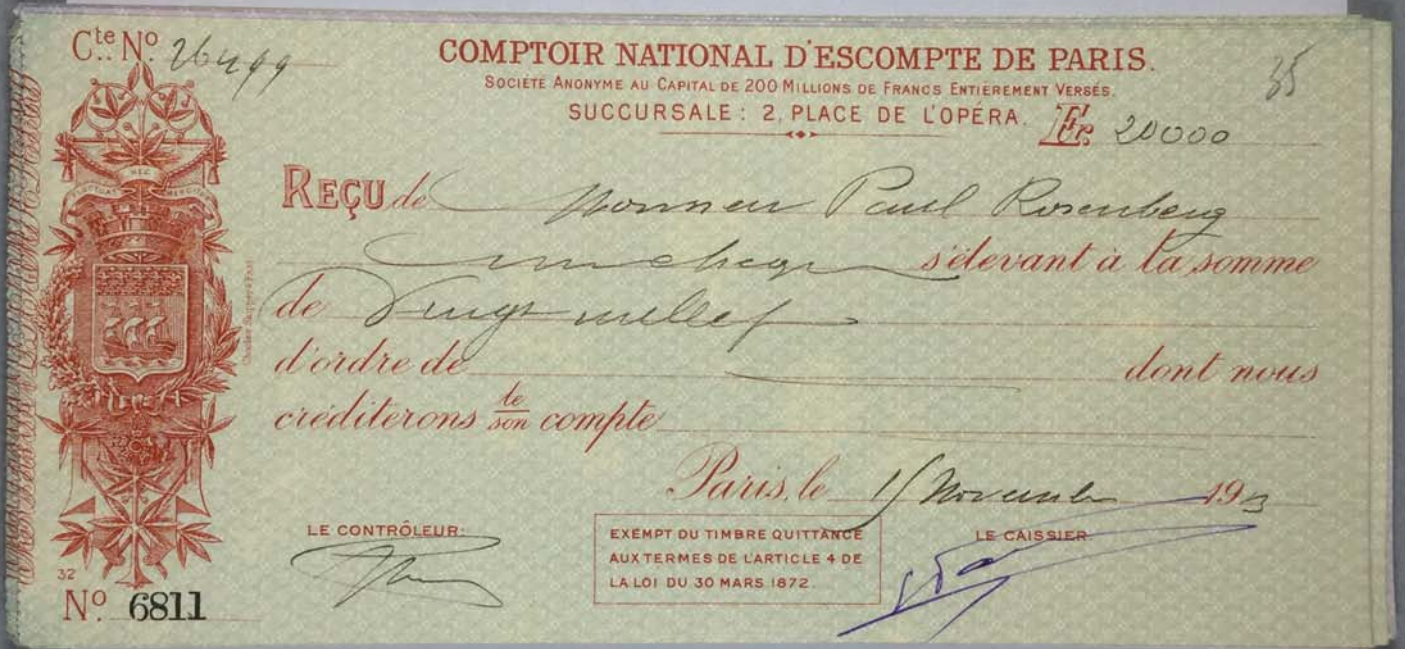 Cte No 26499
COMPTOIR NATIONAL D'ESCOMPTE DE PARIS.
35
SOCIÉTÉ ANONYME AU CAPITAL DE 200 MILLIONS DE FRANCS ENTIÈREMENT VERSÉS.
SUCCURSALE : 2, PLACE DE L'OPÉRA. Fr. 20000
FLUCTUAT NEC MERGITUR
REÇU de Monsieur Paul Rosenberg
un cheque s'élevant à la somme
de Vingt mille f
d'ordre de dont nous
créditerons le/son compte
Paris, le 15 Novembre 19
LE CONTRÔLEUR:
EXEMPT DU TIMBRE QUITTANCE
AUX TERMES DE L'ARTICLE 4 DE
LA LOI DU 30 MARS 1872.
LE CAISSIER
32
No 6811